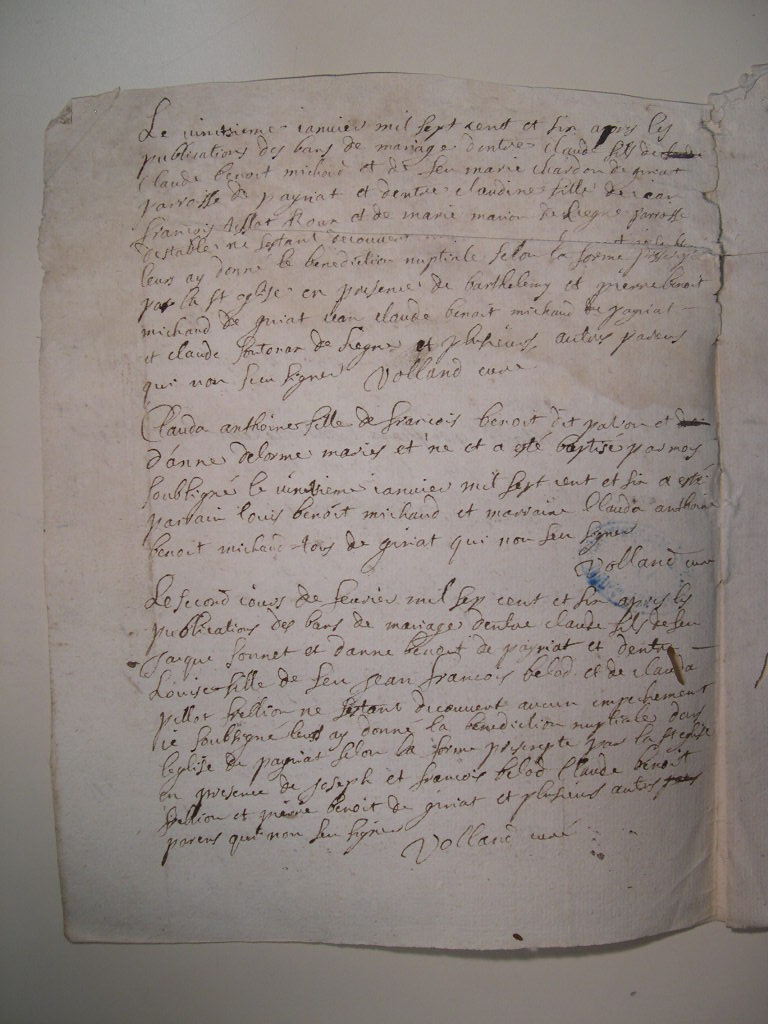 Le vintsieme ianvier mil sept cent et six apres les
publications des bans de mariage dentre claude fils de
Claude benoit michaud et de feu marie chardon de giriat
parroisse de payriat et dentre claudine fille de jean
francois pillot roux et de marie marion de parroisse
destable ne sestant decouvert
leur ay donné le benediction nuptiale selon la forme presscripte
par la st eglise en presence de barthelemy et pierre benoit
michaud de giriat jean claude benoit michaud de payriat
et claude de et plusieurs autres parens
qui non seu signer Volland curé
Clauda anthoine fille de francois benoit dit et
danne delorme maries et né et a esté baptisé par moy
soubsigné le vintsieme ianvier mil sept cent et six a esté
parrain louis benoit michaud et marraine Clauda anthoine
benoit michaud tous de giriat qui non seu signer
Volland curé
Le second iours de fevrier mil sep cent et six apres les
publications des bans de mariage dentre claude fils de feu
jacque sonnet et danne benoit de payriat et dentre
Louise fille de feu jean francois belod et de clauda
pillot frellion ne sestant decouvert aucun impechement
ie soubsigné leur ay donné la benediction nuptiale dans
leglise de payriat selon la forme prescripte par la st eglise
en presence de joseph et francois belod Claude benoit
frellion et pierre benoit de giriat et plusieurs autres
parens qui non seu signer Volland curé